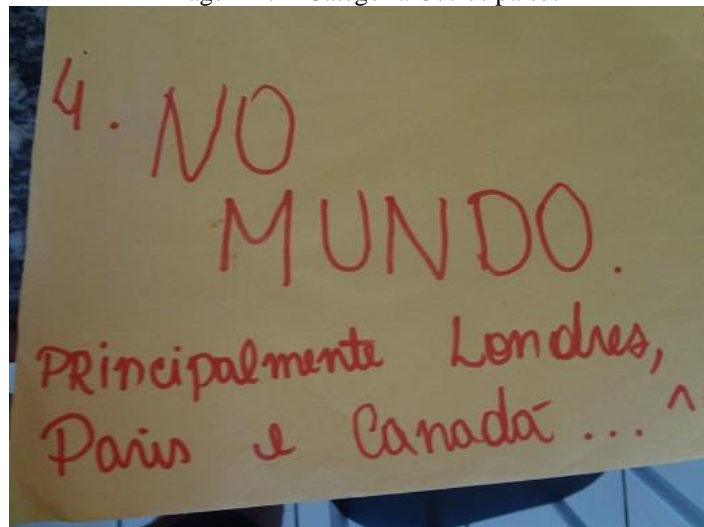 4. NO
MUNDO.
PRincipalmente Londres,
Paris e Canadá... ^